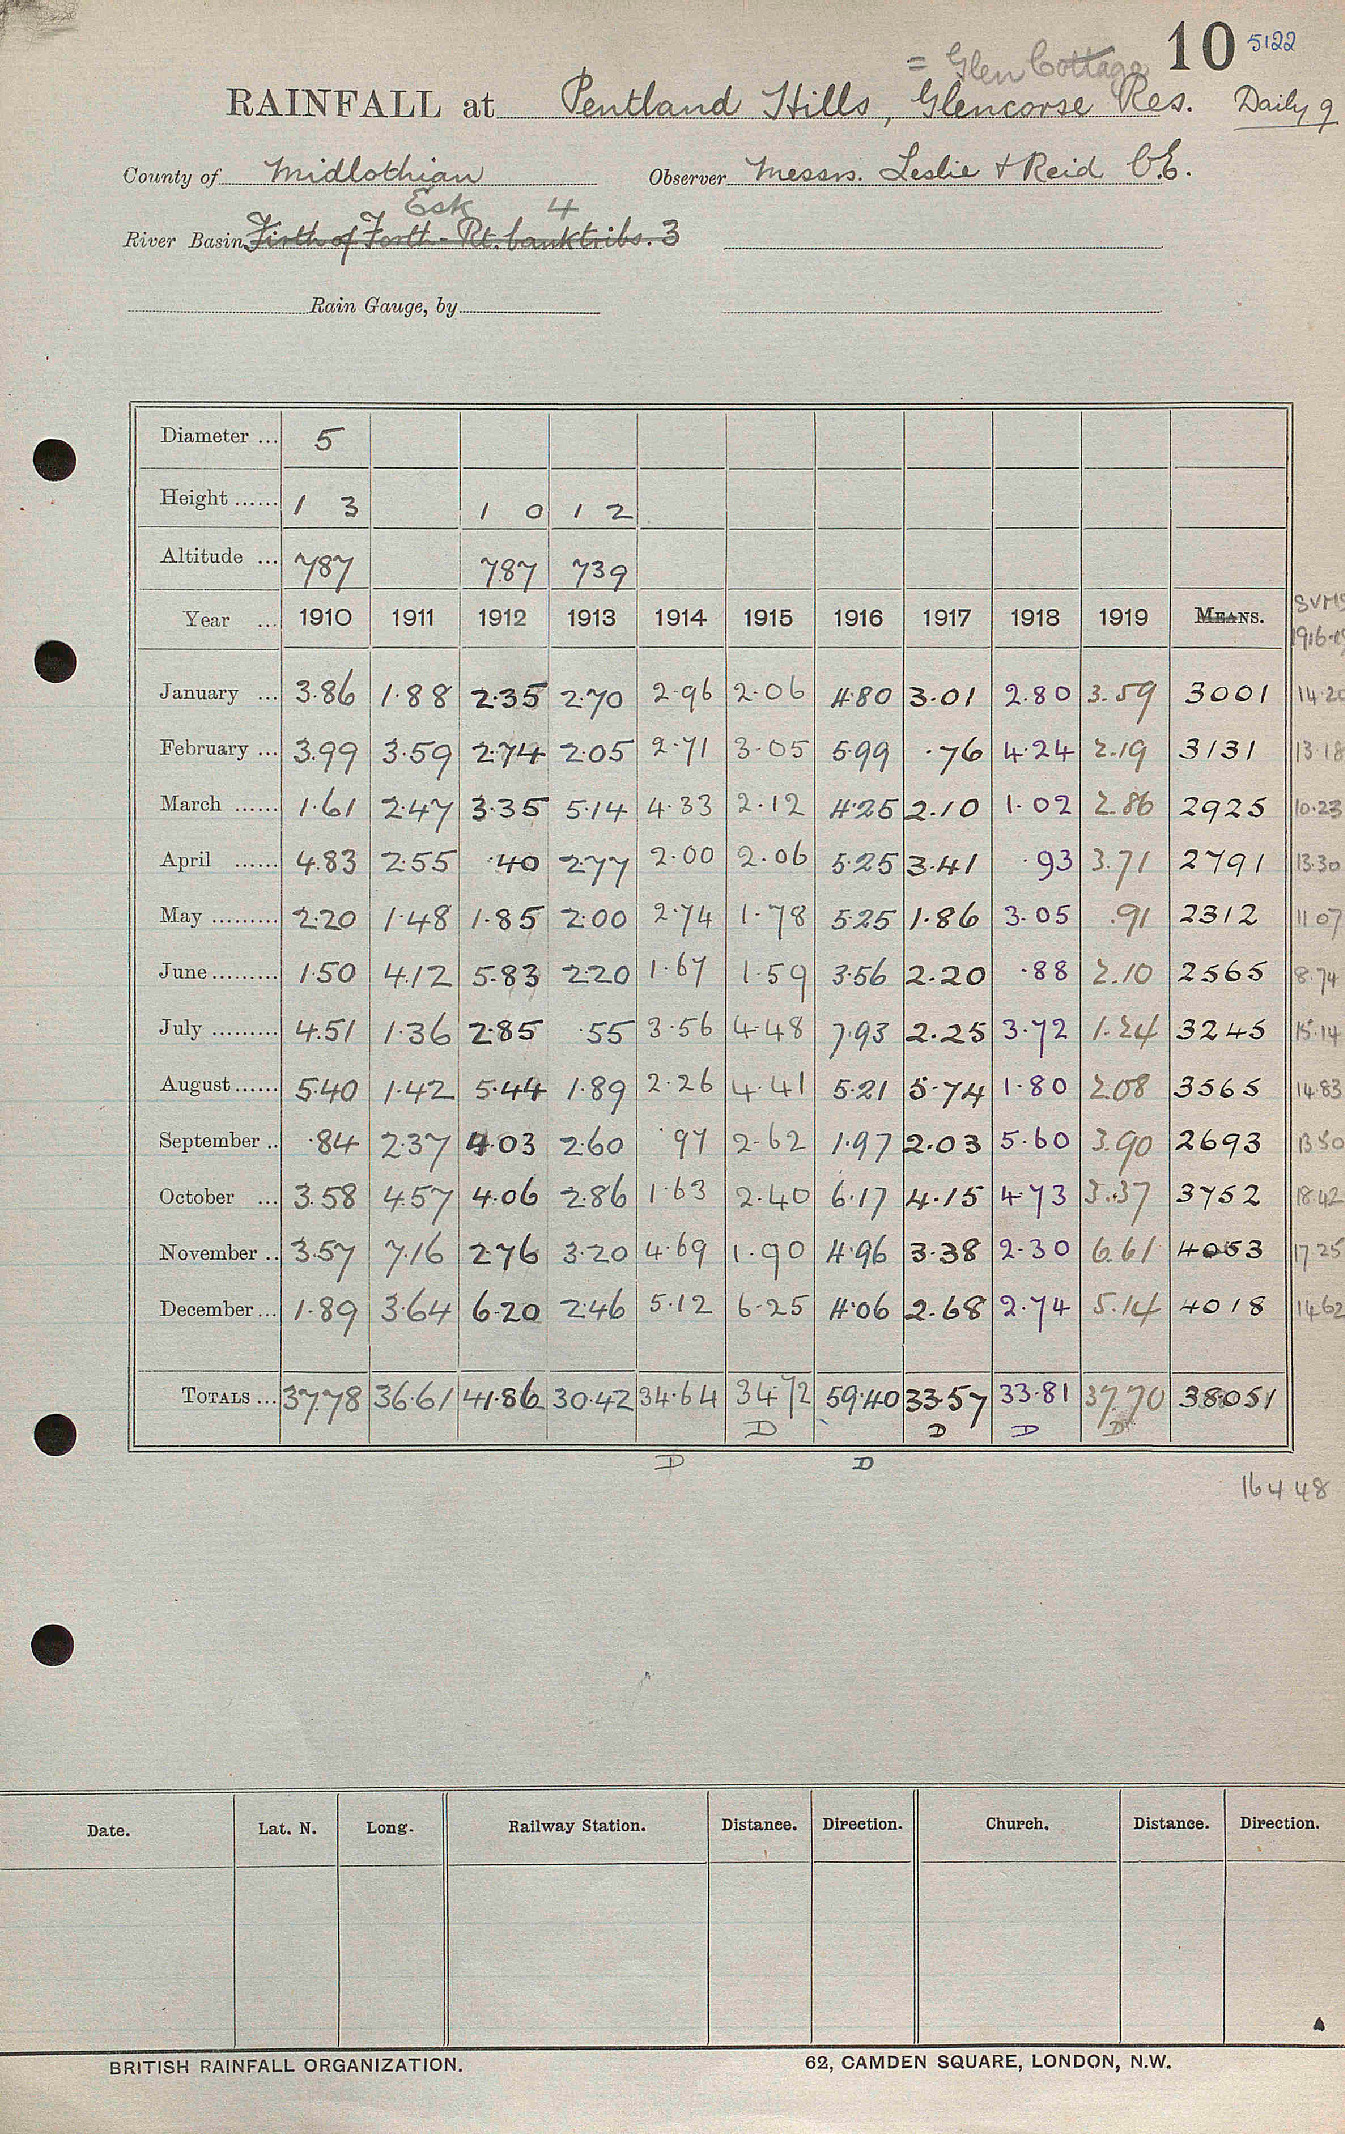 10 5122
= Glen Cottage
RAINFALL at Pentland Hills, Glencorse Res. Daily 9
County of Midlothian Observer Messrs. Leslie & Reid C.E.
Esk 4
River Basin Firth of Forth - Rt. bank tribs. 3
Rain Gauge, by
Diameter ... 5
Height ...... 1 3 1 0 1 2
Altitude ... 787 787 739
Year ... 1910 1911 1912 1913 1914 1915 1916 1917 1918 1919 MEANS. SUMS 1916-19
January ... 3.86 1.88 2.35 2.70 2.96 2.06 4.80 3.01 2.80 3.59 3001 14.20
February ... 3.99 3.59 2.74 2.05 2.71 3.05 5.99 .76 4.24 2.19 3131 13.18
March ...... 1.61 2.47 3.35 5.14 4.33 2.12 4.25 2.10 1.02 2.86 2925 10.23
April ...... 4.83 2.55 .40 2.77 2.00 2.06 5.25 3.41 .93 3.71 2791 13.30
May ......... 2.20 1.48 1.85 2.00 2.74 1.78 5.25 1.86 3.05 .91 2312 11 07
June ......... 1.50 4.12 5.83 2.20 1.67 1.59 3.56 2.20 .88 2.10 2565 8.74
July ......... 4.51 1.36 2.85 .55 3.56 4.48 7.93 2.25 3.72 1.24 3245 15.14
August ...... 5.40 1.42 5.44 1.89 2.26 4.41 5.21 5.74 1.80 2.08 3565 14.83
September .. .84 2.37 4.03 2.60 .97 2.62 1.97 2.03 5.60 3.90 2693 13 50
October ... 3.58 4.57 4.06 2.86 1.63 2.40 6.17 4.15 4.73 3.37 3752 18.42
November .. 3.57 7.16 2.76 3.20 4.69 1.90 4.96 3.38 2.30 6.61 4053 17.25
December ... 1.89 3.64 6.20 2.46 5.12 6.25 4.06 2.68 2.74 5.14 4018 14.62
TOTALS ... 37.78 36.61 41.86 30.42 34.64 34.72 59.40 33.57 33.81 37.70 38051
D D D D
D D
164 48
Date. Lat. N. Long. Railway Station. Distance. Direction. Church. Distance. Direction.
BRITISH RAINFALL ORGANIZATION. 62, CAMDEN SQUARE, LONDON, N.W.